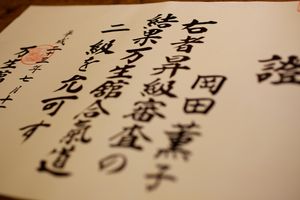 證
岡田薫子
右者昇級審査の
結果万生館合氣道
二級を允可す
平成二十五年七月十
万生